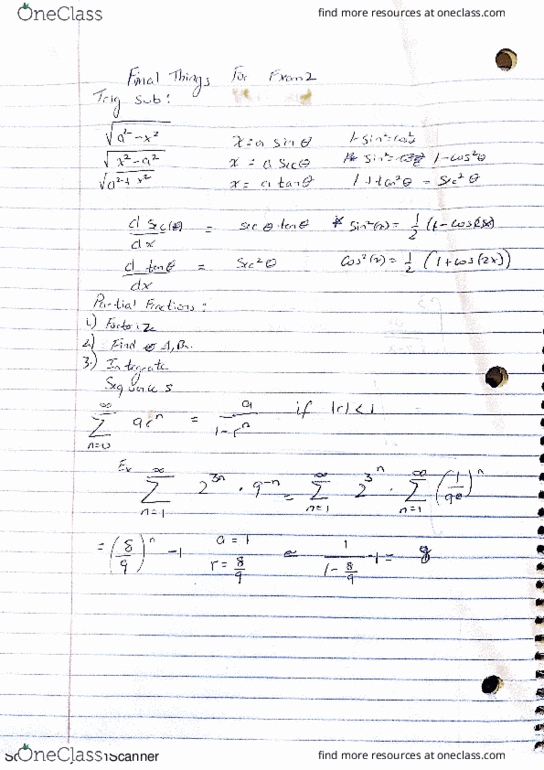 OneClass
find more resources at oneclass.com
Final Things For Exam 2
Trig Sub:
√a²-x²  x = a sin θ  1-sin²=cos²
√x²-a²  x = a sec θ  sin²= 1-cos²θ
√a²+x²  x = a tan θ  1+tan²θ = sec²θ
d sec(θ)/dx = sec θ tan θ  * sin²(x) = 1/2 (1-cos(2x)
d tan θ/dx = sec²θ  cos²(x) = 1/2 (1+cos(2x))
Partial Fractions:
1) Factorize
2) Find A,B.
3.) Integrate
Sequences
∞ Σ n=0 ar^n = a/1-r^n if |r|<1
Ex ∞ Σ n=1 2^3n · 9^-n = ∞ Σ n=1 2^3^n · ∞ Σ n=1
= (8/9)^n -1  a = 1  r = 8/9  = 1/1-8/9 -1 = 8
OneClass
Scanner
find more resources at oneclass.com